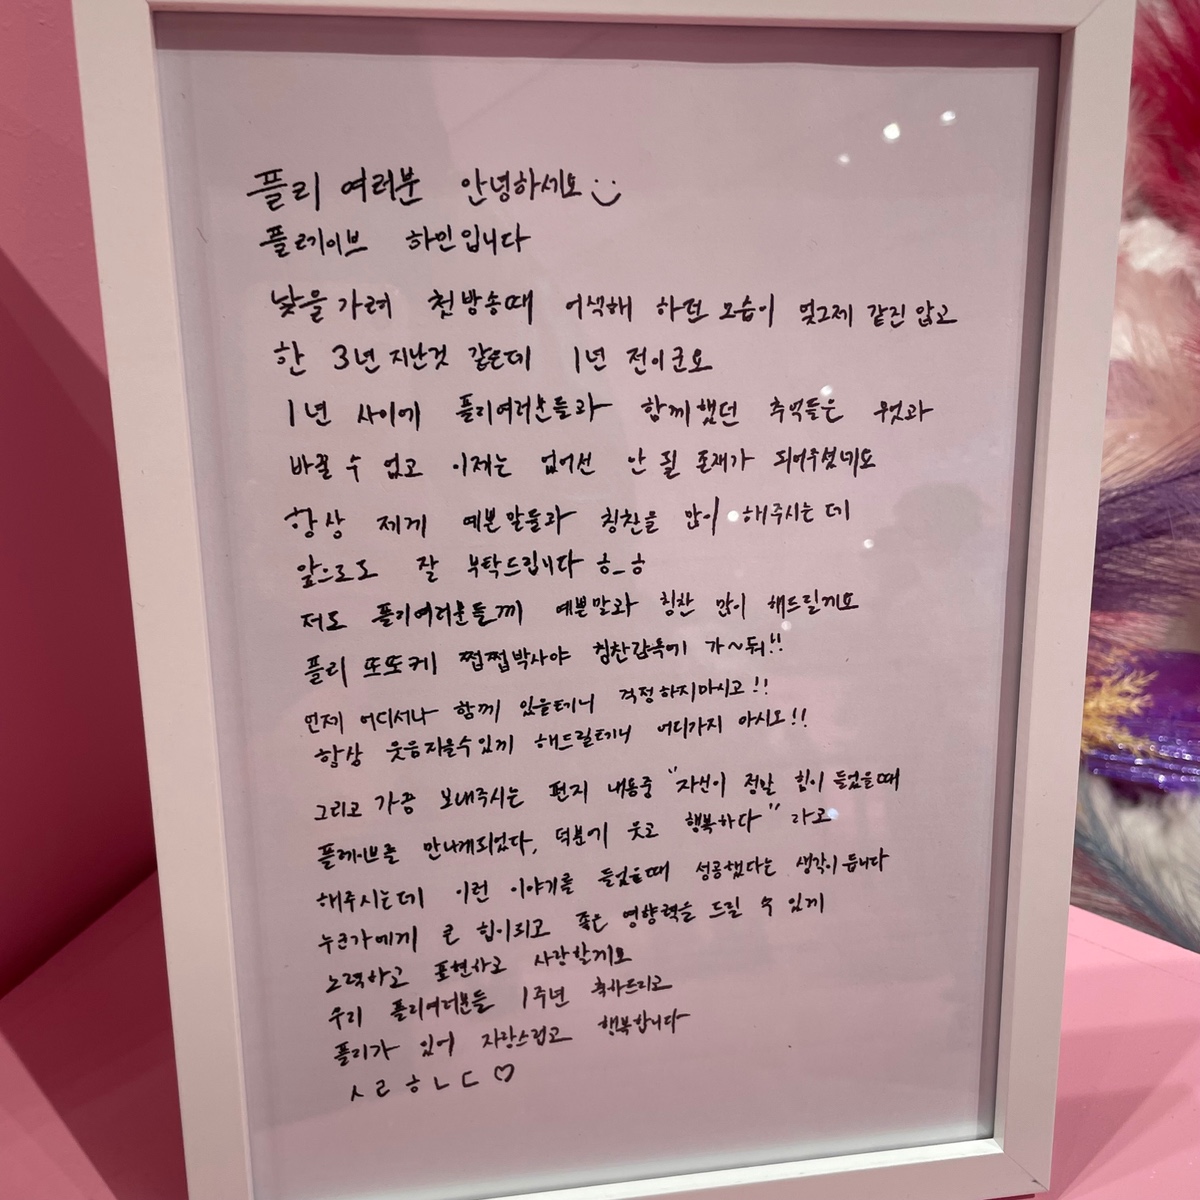 플리 여러분 안녕하세요 :)
플레이브 하민입니다
낯을 가려 첫방송때 어색해 하던 모습이 엊그제 같진 않고
한 3년 지난것 같은데 1년 전이군요
1년 사이에 플리여러분들과 함께했던 추억들은 무엇과
바꿀 수 없고 이제는 없어선 안 될 존재가 되어주셨네요
항상 제게 예쁜말들과 칭찬을 많이 해주시는데
앞으로도 잘 부탁드립니다 ㅎ_ㅎ
저도 플리여러분들께 예쁜말과 칭찬 많이 해드릴게요
플리 또또케 쩝쩝박사야 칭찬감옥에 가~둬!!
언제 어디서나 함께 있을테니 걱정하지마시고!!
항상 웃음지을수있게 해드릴테니 어디가지 마시오!!
그리고 가끔 보내주시는 편지 내용중 "자신이 정말 힘이 들었을때
플레이브를 만나게되었다, 덕분에 웃고 행복하다" 라고
해주시는데 이런 이야기를 들었을때 성공했다는 생각이 듭니다
누군가에게 큰 힘이되고 좋은 영향력을 드릴 수 있게
노력하고 표현하고 사랑할게요
우리 플리여러분들 1주년 축하드리고
플리가 있어 자랑스럽고 행복합니다
ㅅㄹㅎㄴㄷ♡